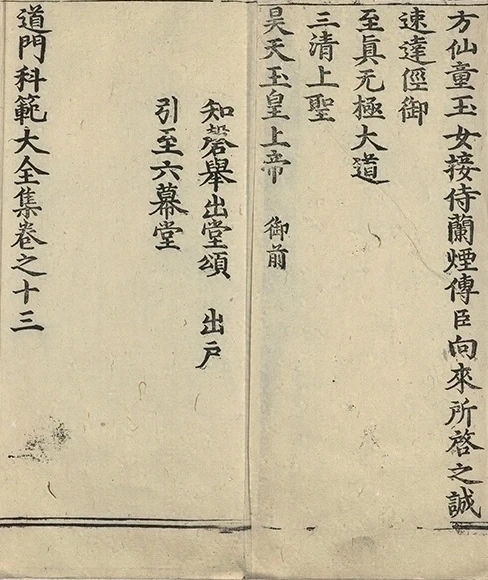 方仙童玉女接侍蘭煙傳臣向來所啓之誠
速達徑御
至眞无極大道
三清上聖
昊天玉皇上帝 御前
知磬舉出堂頌 出戶
引至六幕堂
道門科範大全集卷之十三